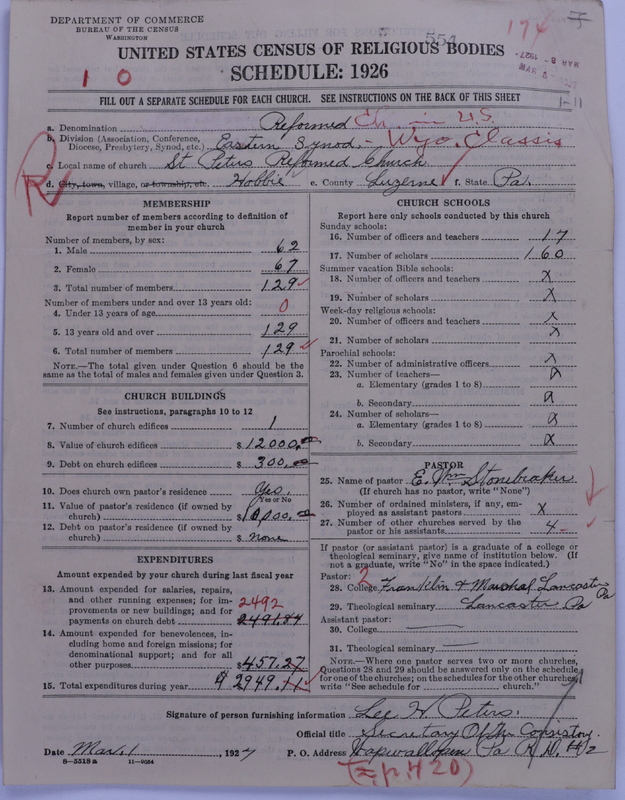 DEPARTMENT OF COMMERCE
BUREAU OF THE CENSUS
WASHINGTON
554
174
UNITED STATES CENSUS OF RELIGIOUS BODIES
SCHEDULE: 1926
1 0
FILL OUT A SEPARATE SCHEDULE FOR EACH CHURCH. SEE INSTRUCTIONS ON THE BACK OF THIS SHEET
1-11
a. Denomination Reformed Ch. in U.S.
b. Division (Association, Conference, Diocese, Presbytery, Synod, etc.) Eastern Synod - Wyo. Classis
c. Local name of church St Peters Reformed Church
d. City, town, village, or township, etc. Hobbie e. County Luzerne f. State Pa.
MEMBERSHIP
Report number of members according to definition of
member in your church
Number of members, by sex:
1. Male 62
2. Female 67
3. Total number of members 129
Number of members under and over 13 years old:
4. Under 13 years of age 0
5. 13 years old and over 129
6. Total number of members 129
NOTE.—The total given under Question 6 should be
same as the total of males and females given under Question 3.
CHURCH BUILDINGS
See instructions, paragraphs 10 to 12
7. Number of church edifices 1
8. Value of church edifices $ 12000.00
9. Debt on church edifices $ 300.00
10. Does church own pastor's residence Yes.
Yes or No
11. Value of pastor's residence (if owned by
church) $ 1000.00
12. Debt on pastor's residence (if owned by
church) $ none
EXPENDITURES
Amount expended by your church during last fiscal year
13. Amount expended for salaries, repairs,
and other running expenses; for im-
provements or new buildings; and for 2492
payments on church debt 2491.84
14. Amount expended for benevolences, in-
cluding home and foreign missions; for
denominational support; and for all
other purposes $ 457.27
15. Total expenditures during year $ 2949.11
CHURCH SCHOOLS
Report here only schools conducted by this church
Sunday schools:
16. Number of officers and teachers 17
17. Number of scholars 160
Summer vacation Bible schools:
18. Number of officers and teachers x
19. Number of scholars x
Week-day religious schools:
20. Number of officers and teachers x
21. Number of scholars x
Parochial schools:
22. Number of administrative officers x
23. Number of teachers—
a. Elementary (grades 1 to 8) x
b. Secondary x
24. Number of scholars—
a. Elementary (grades 1 to 8) x
b. Secondary x
PASTOR
25. Name of pastor E. Wm Stonebraker
(If church has no pastor, write "None")
26. Number of ordained ministers, if any, em-
ployed as assistant pastors x
27. Number of other churches served by the
pastor or his assistants 4
If pastor (or assistant pastor) is a graduate of a college or
theological seminary, give name of institution below. (If
not a graduate, write "No" in the space indicated.)
Pastor: 2
28. College Franklin & Marshal Lancaster Pa
29. Theological seminary Lancaster Pa
Assistant pastor:
30. College
31. Theological seminary
NOTE.—Where one pastor serves two or more churches,
Questions 28 and 29 should be answered only on the schedule
for one of the churches; on the schedules for the other churches,
write "See schedule for church."
Signature of person furnishing information Lee W. Peters.
Official title Secretary Of the Consistory.
Date Mar. 1, 1927 P. O. Address Wapwallopen Pa R.D. #2
8—5518 a 11—9064